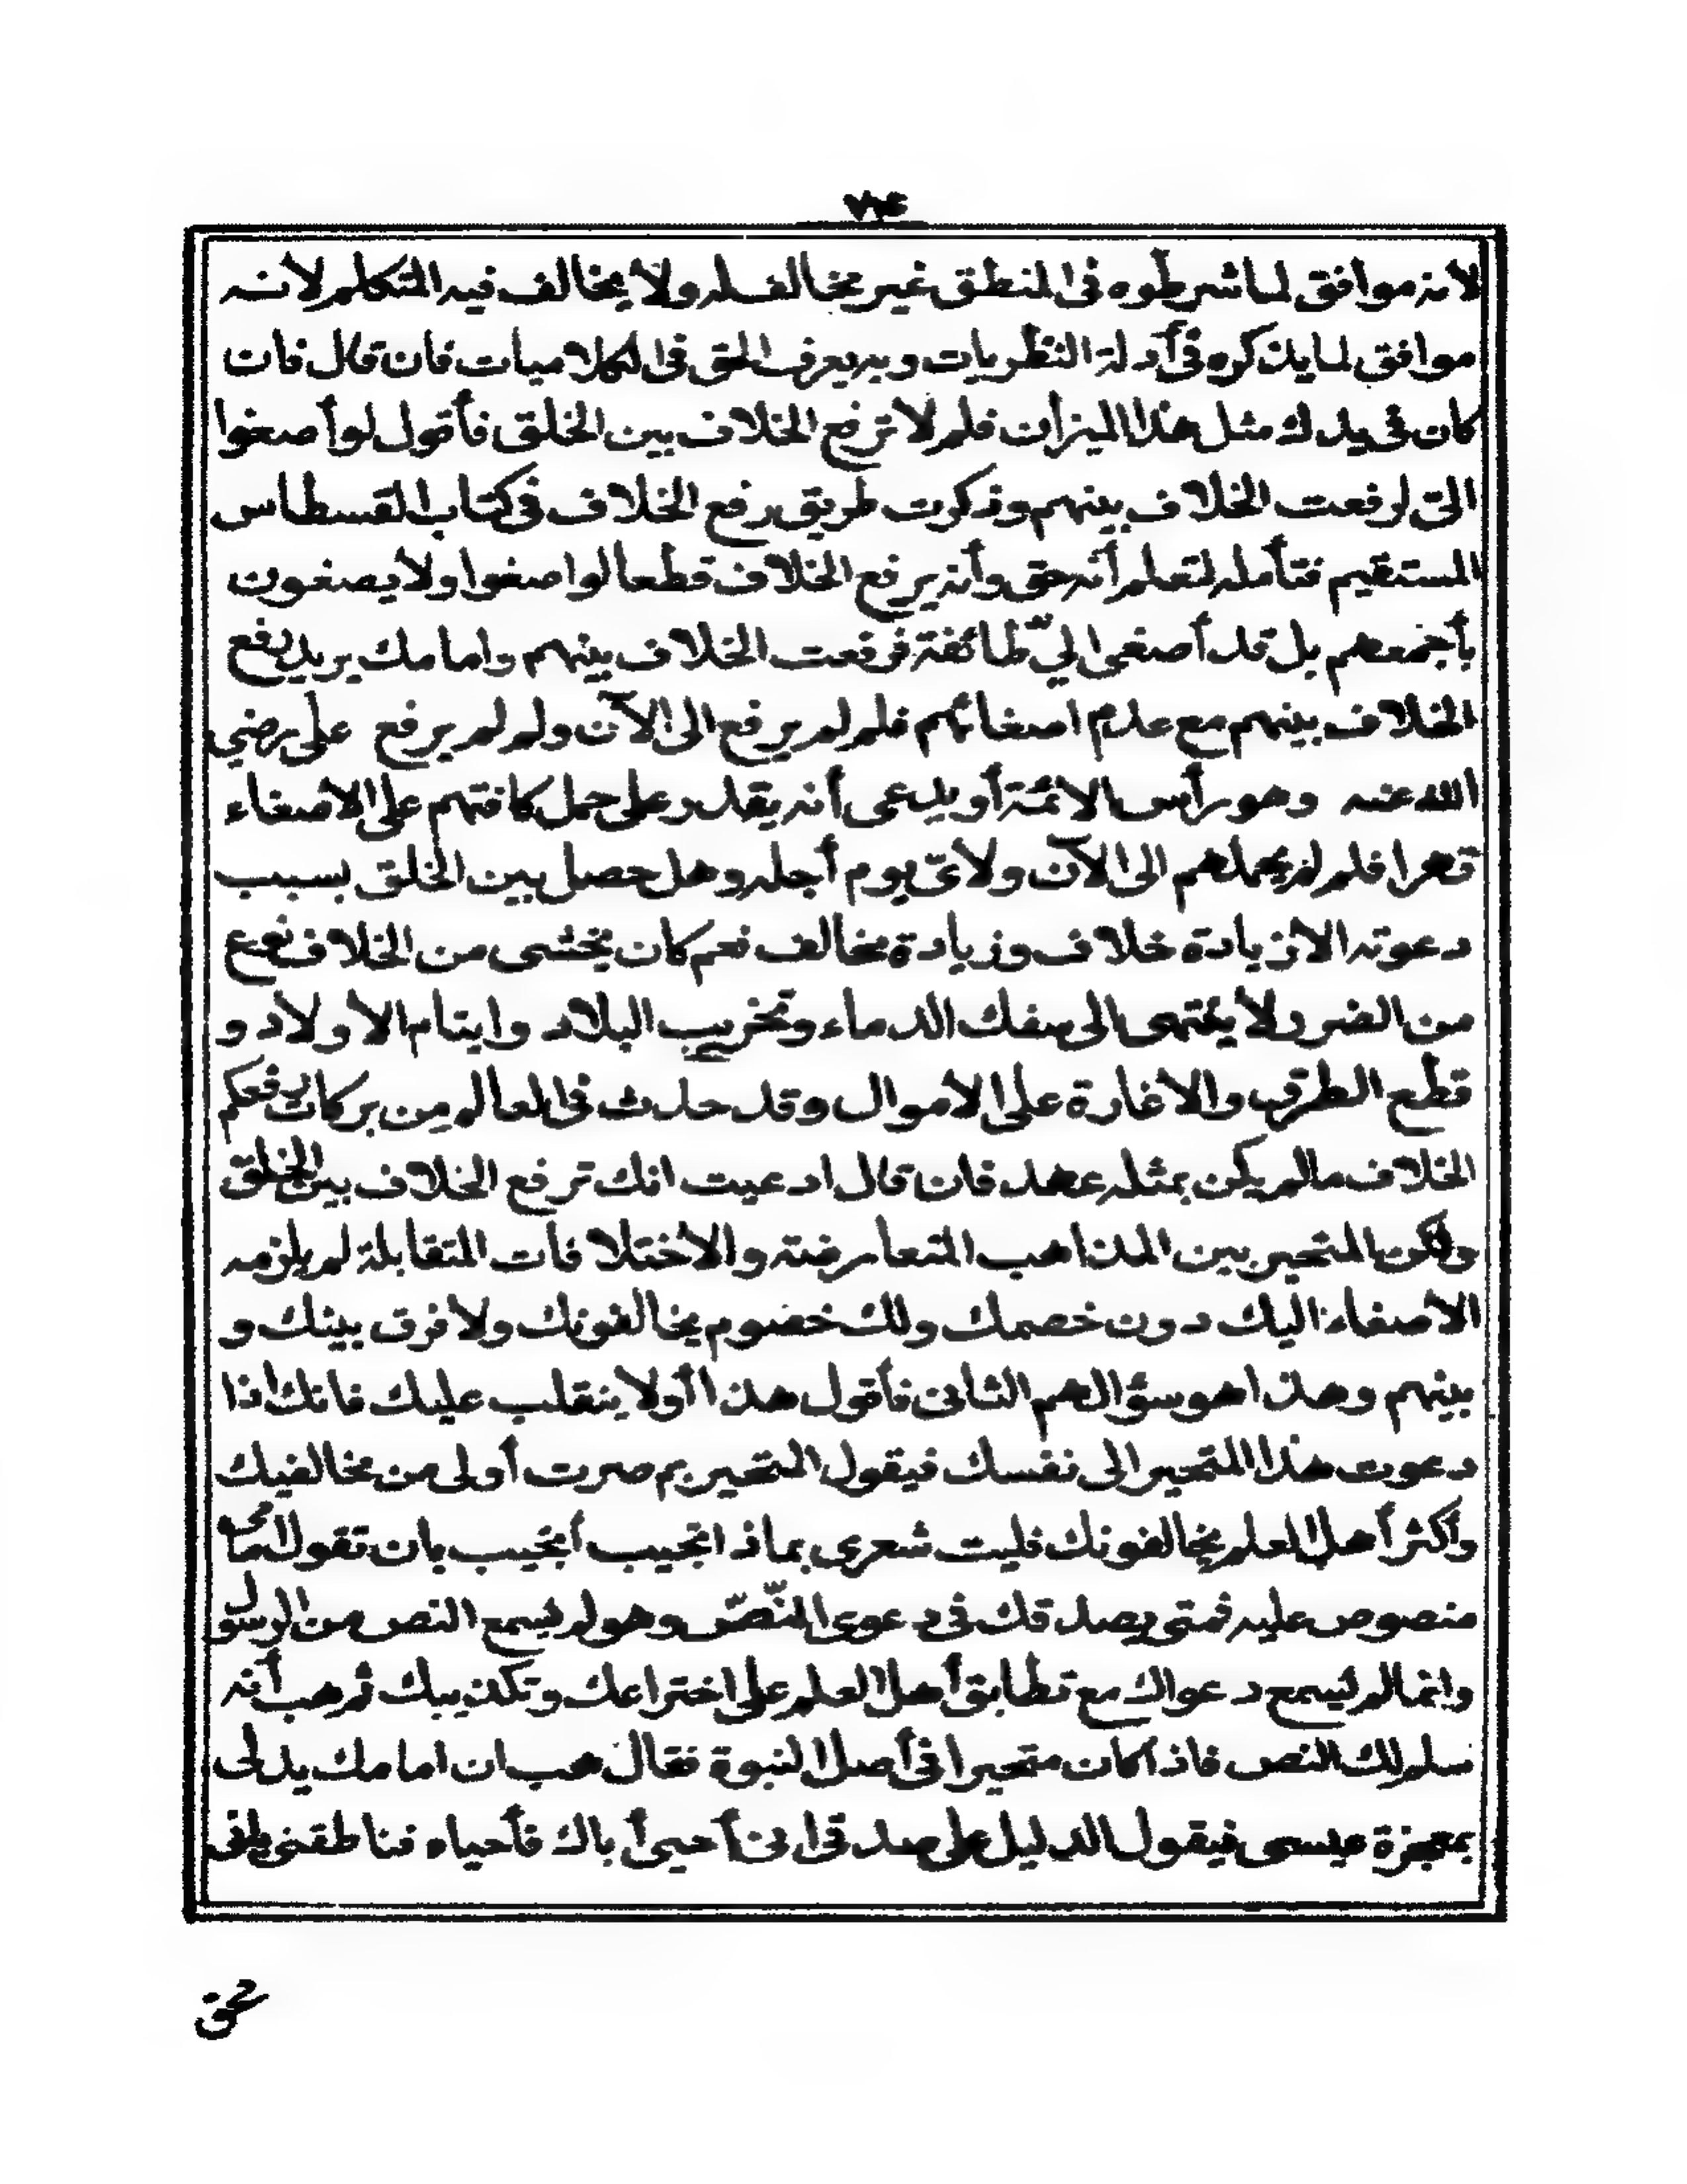 لانه موافق لما شرطوه فى المنطق غير مخالف له ولا يخالف فيه المتكلم لانه
موافق لما يذكره فى أدلة النظريات وبه يعرف الحق فى الكلاميات فان قال فان
كان فى يدك مثل هذا الميزان فلم لا ترفع الخلاف بين الخلق فأقول لو أصغوا
الىّ لرفعت الخلاف بينهم وذكرت طريق رفع الخلاف فى كتاب القسطاس
المستقيم فتأمله لتعلم أنه حق وأنه يرفع الخلاف قطعا لو اصغوا ولا يصغون
بأجمعهم بل قد أصغى اليّ طائفة فرفعت الخلاف بينهم وامامك يريد رفع
الخلاف بينهم مع عدم اصغائهم فلم لم يرفع الى الآن ولم لم يرفع على رضي
الله عنه وهو رأس الائمة أو يدعى أنه يقدر على حمل كافتهم على الاصغاء
قهرا فلم لم يحملهم الى الآن ولأىّ يوم أجله وهل حصل بين الخلق بسبب
دعوته الا زيادة خلاف وزيادة مخالف نعم كان يخشى من الخلاف نوع
من الضرر لا ينتهى الى سفك الدماء وتخريب البلاد وايتام الاولاد و
قطع الطرق والاغارة على الأموال وقد حدث فى العالم من بركات رفعكم
الخلاف ما لم يكن بمثله عهد فان قال ادعيت انك ترفع الخلاف بين الخلق
ولكن المتحير بين المذاهب المتعارضة والاختلافات المتقابلة لم يلزمه
الاصغاء اليك دون خصمك ولك خصوم يخالفونك ولا فرق بينك و
بينهم وهذا هو سؤالهم الثانى فأقول هذا أولا ينقلب عليك فانك اذا
دعوت هذا المتحير الى نفسك فيقول المتحير بم صرت أولى من مخالفيك
وأكثر أهل العلم يخالفونك فليت شعرى بماذا تجيب أتجيب بان تقول امامى
منصوص عليه فمتى يصدقك فى دعوى النّصّ وهو لم يسمع النص من الرسول
وانما لم يسمع دعواك مع تطابق أهل العلم على اختراعك وتكذيبك ثم هب أنه
سلم لك النص فاذا كان متحيرا فى أصل النبوة فقال هب ان امامك يدلى
بمعجزة عيسى فيقول الدليل على صدقى انى أحيى أباك فأحياه فناطقنى